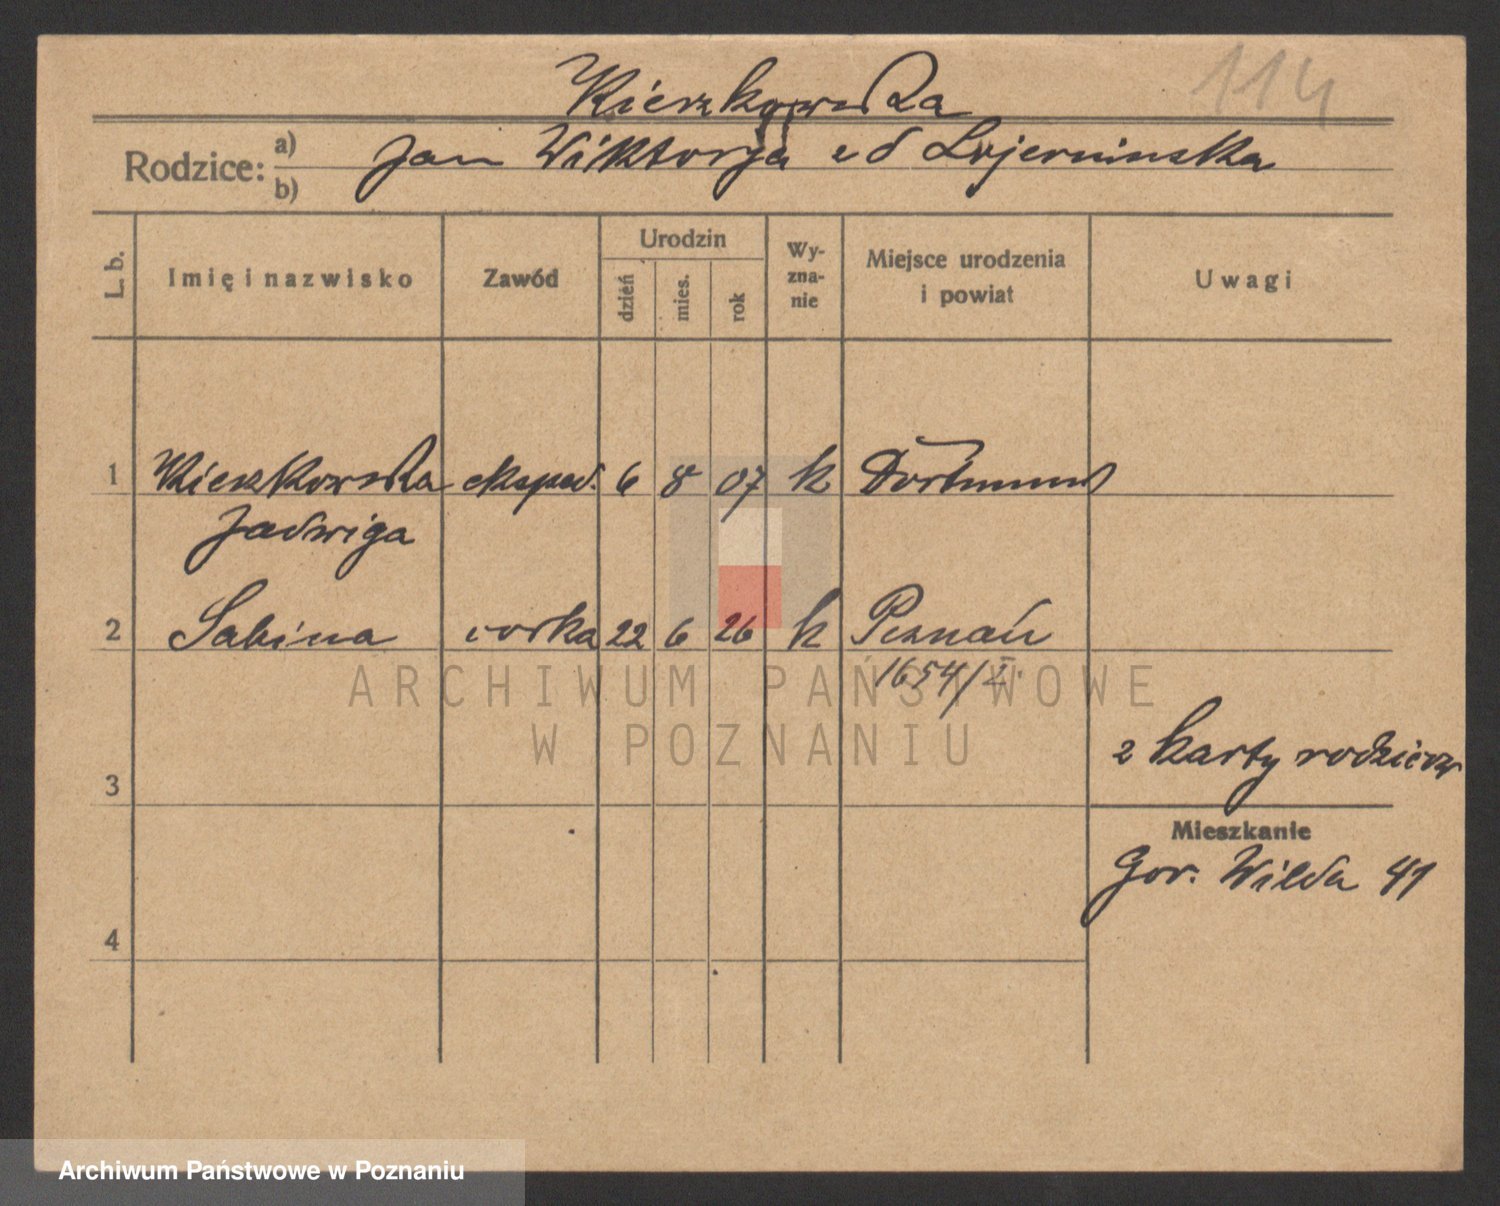 114
Kieszkowska
Rodzice: a) Jan Wiktorja
b)
L. b. Imię i nazwisko Zawód Urodzin dzień mies. rok Wy-zna-nie Miejsce urodzenia i powiat Uwagi
1 Kieszkowska eksped. 6 8 07 k Dortmund
Jadwiga
2 Sabina corka 22 6 26 k Poznań
1654/I.
ARCHIWUM PAŃSTWOWE
W POZNANIU
2 karty rodziców
3
Mieszkanie
Gor. Wilda 41
4
Archiwum Państwowe w Poznaniu